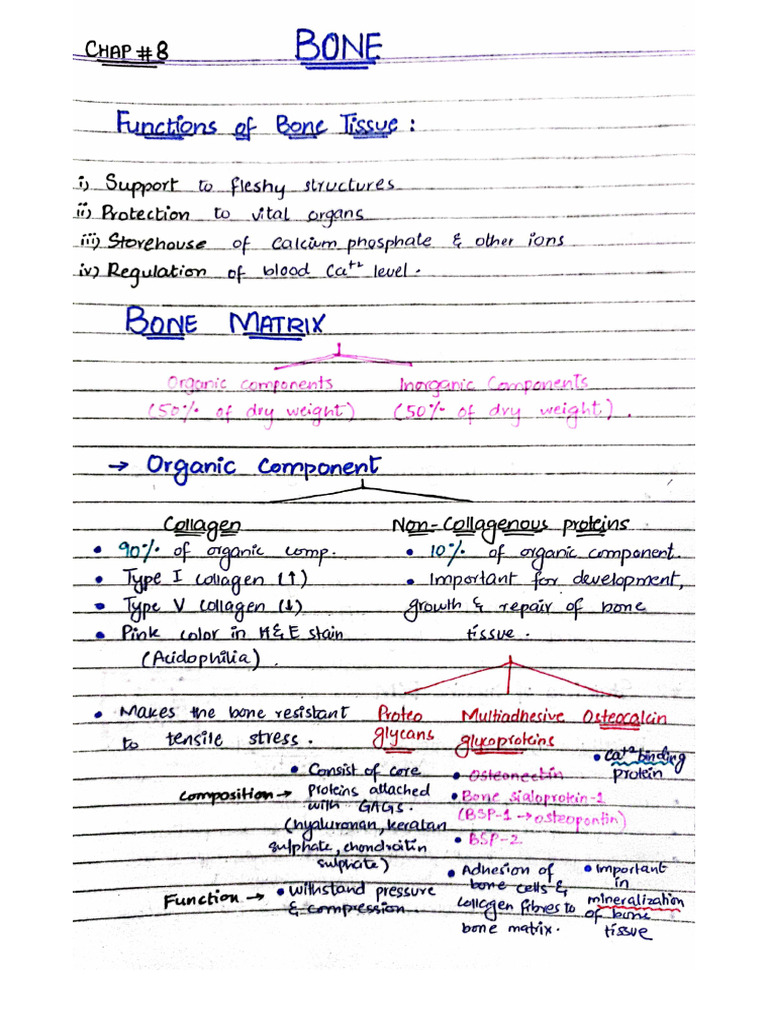 CHAP # 8 BONE
Functions of Bone Tissue :
i) Support to fleshy structures
ii) Protection to vital organs
iii) Storehouse of calcium phosphate & other ions
iv) Regulation of blood Ca⁺² level.
BONE MATRIX
Organic components Inorganic Components
(50% of dry weight) (50% of dry weight).
→ Organic Component
Collagen Non-Collagenous proteins
• 90% of organic comp. • 10% of organic component.
• Type I collagen (↑) • Important for development,
• Type V collagen (↓) growth & repair of bone
• Pink color in H&E stain tissue.
(Acidophilia).
• Makes the bone resistant Proteo Multiadhesive Osteocalcin
to tensile stress. glycans glycoproteins
• Ca⁺² binding
protein
• Consist of core • Osteonectin
Composition → Proteins attached • Bone sialoprotein-1
with GAGs. (BSP-1 → osteopontin)
(hyaluronan, keratan • BSP-2
sulphate, chondroitin
sulphate)
• Adhesion of • Important
Function → • withstand pressure bone cells & in
& compression. collagen fibres to mineralization
bone matrix. of bone
tissue